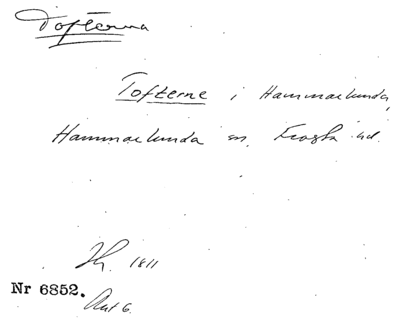 Tofterna
Tofterne i Hammarlunda,
Hammarlunda sn, Frosta hd.
1811
Nr 6852.
Akt 6.